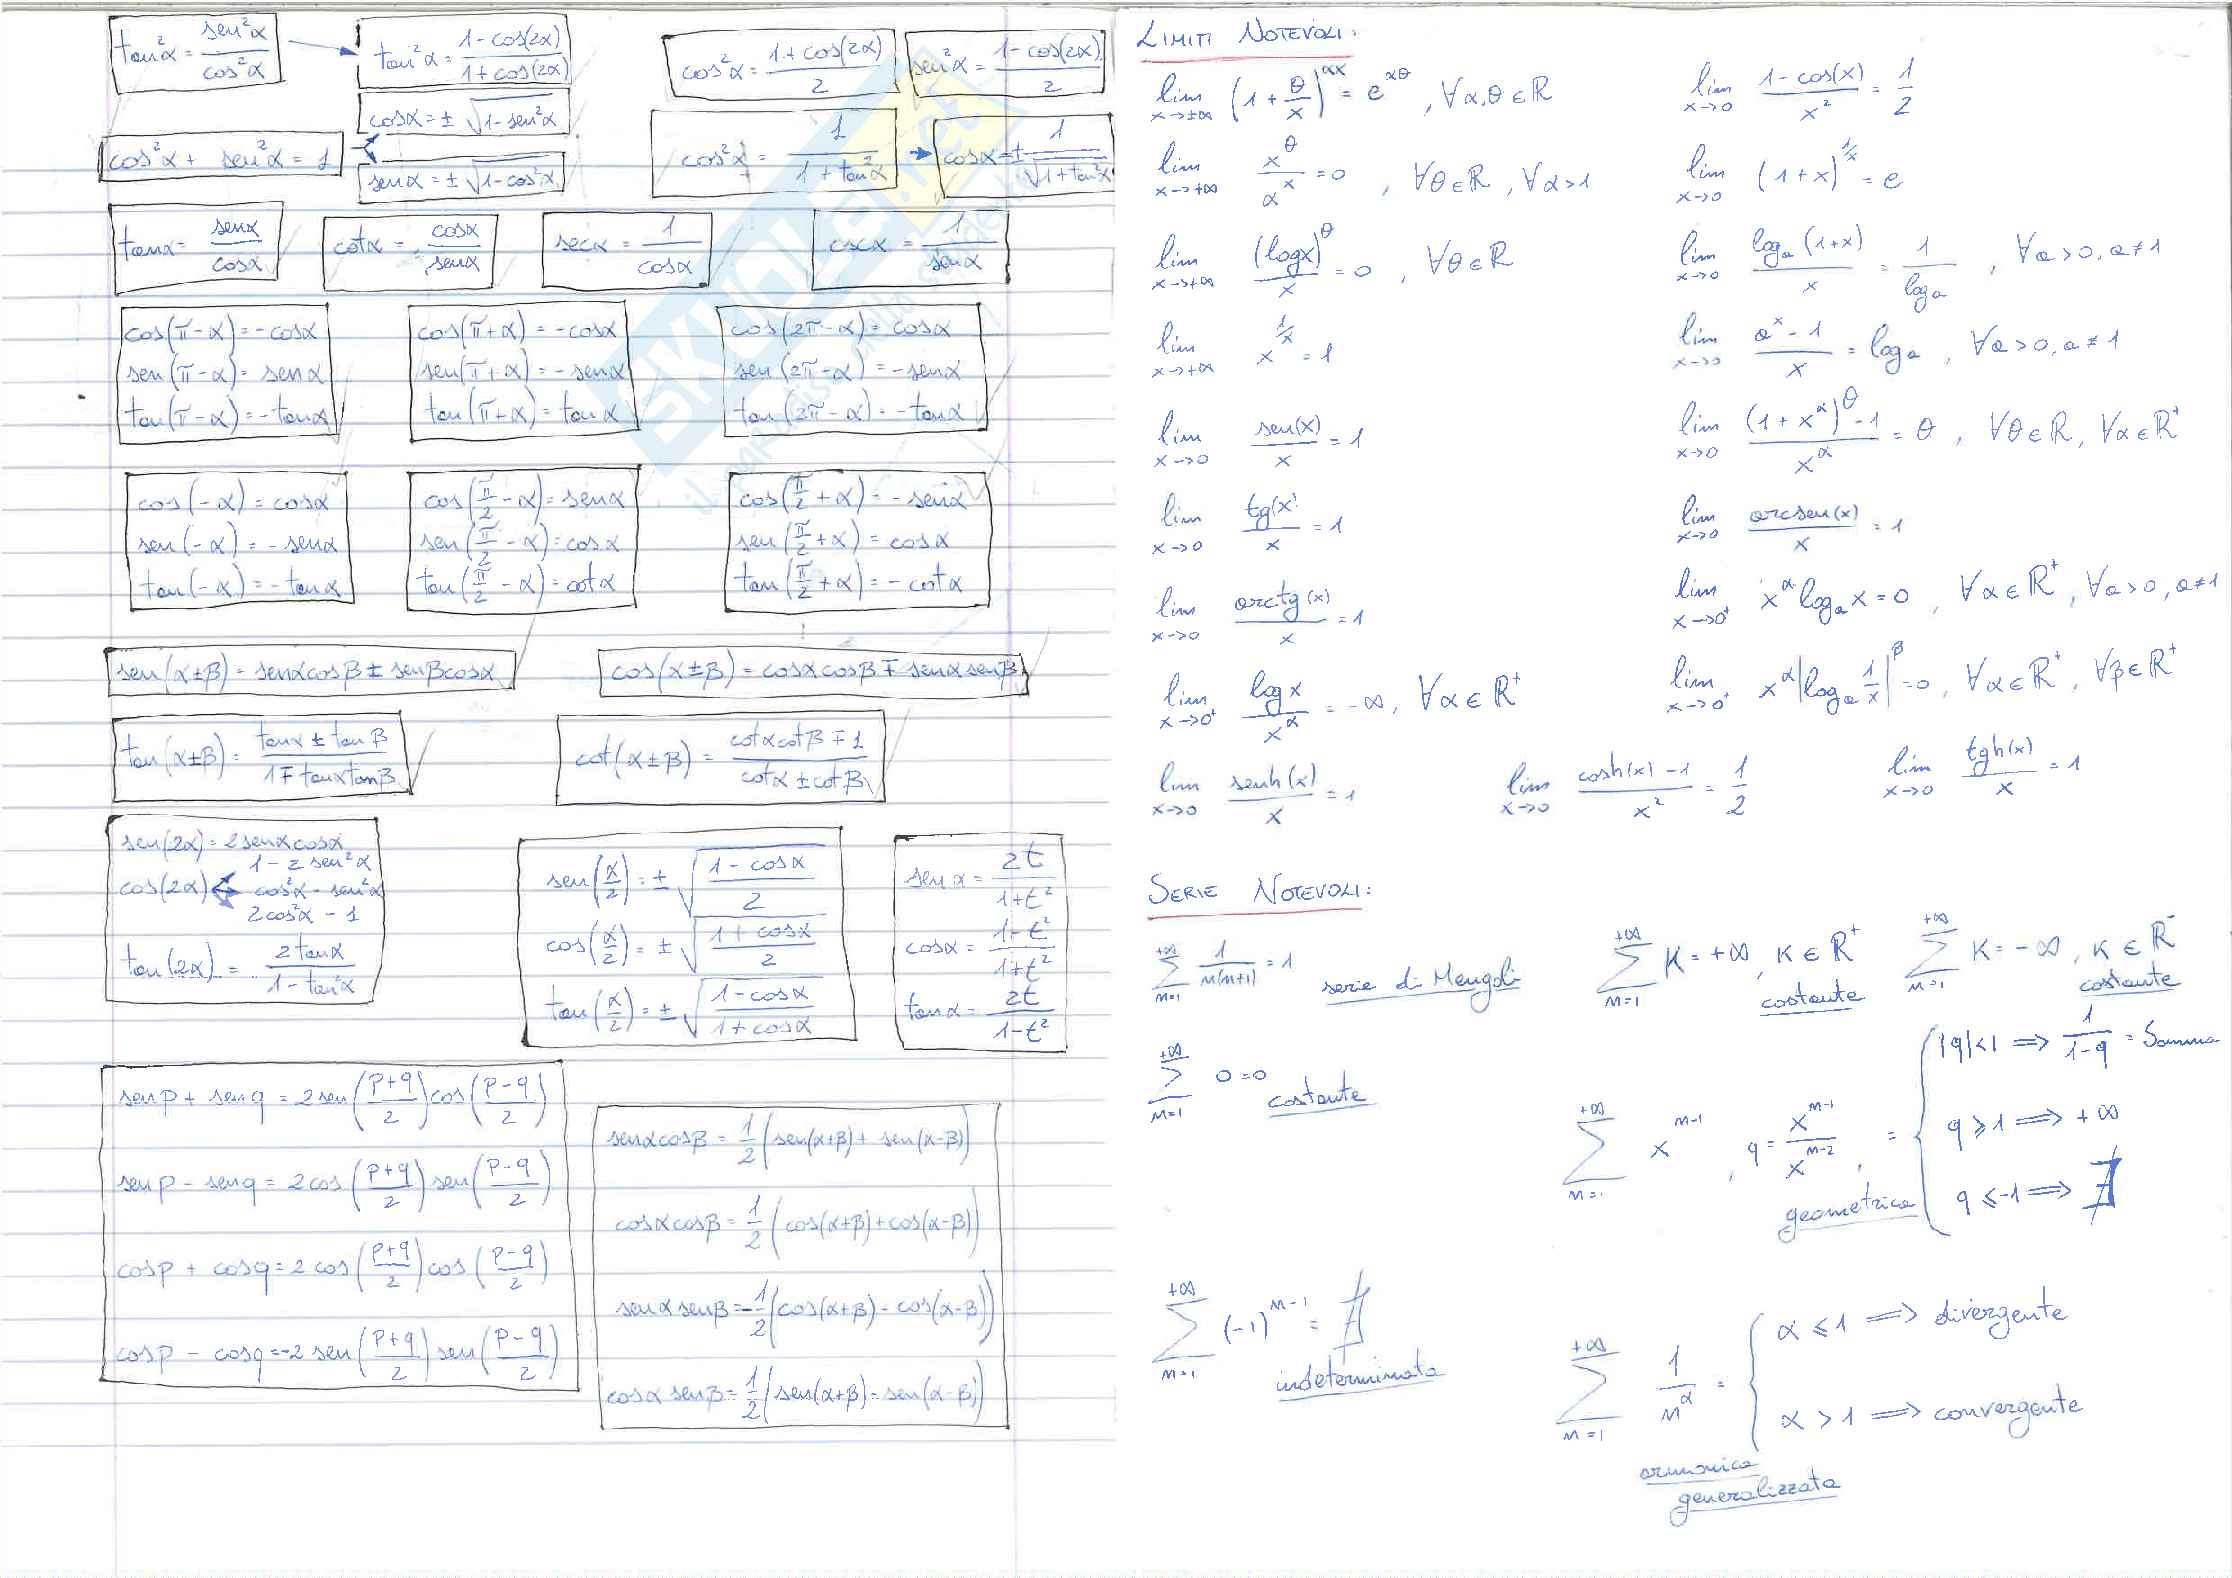 tan²α = sen²α / cos²α
tan²α = 1-cos(2α) / 1+cos(2α)
cos²α = 1+cos(2α) / 2
sen²α = 1-cos(2α) / 2
cos²α + sen²α = 1
cosα = ± √(1-sen²α)
senα = ± √(1-cos²α)
cos²α = 1 / 1+tan²α
cosα = ± 1 / √(1+tan²α)
tanα = senα / cosα
cotα = cosα / senα
secα = 1 / cosα
cscα = 1 / senα
cos(π-α) = -cosα
sen(π-α) = senα
tan(π-α) = -tanα
cos(π+α) = -cosα
sen(π+α) = -senα
tan(π+α) = tanα
cos(2π-α) = cosα
sen(2π-α) = -senα
tan(2π-α) = -tanα
cos(-α) = cosα
sen(-α) = -senα
tan(-α) = -tanα
cos(π/2 - α) = senα
sen(π/2 - α) = cosα
tan(π/2 - α) = cotα
cos(π/2 + α) = -senα
sen(π/2 + α) = cosα
tan(π/2 + α) = -cotα
sen(α±β) = senαcosβ ± senβcosα
cos(α±β) = cosαcosβ ∓ senαsenβ
tan(α±β) = tanα ± tanβ / 1∓tanαtanβ
cot(α±β) = cotαcotβ ∓ 1 / cotα ± cotβ
sen(2α) = 2senαcosα
1-2sen²α
cos(2α) cos²α - sen²α
2cos²α - 1
tan(2α) = 2tanα / 1-tan²α
sen(α/2) = ± √(1-cosα / 2)
cos(α/2) = ± √(1+cosα / 2)
tan(α/2) = ± √(1-cosα / 1+cosα)
senα = 2t / 1+t²
cosα = 1-t² / 1+t²
tanα = 2t / 1-t²
senp + senq = 2sen(p+q / 2)cos(p-q / 2)
senp - senq = 2cos(p+q / 2)sen(p-q / 2)
cosp + cosq = 2cos(p+q / 2)cos(p-q / 2)
cosp - cosq = -2sen(p+q / 2)sen(p-q / 2)
senαcosβ = 1/2 (sen(α+β) + sen(α-β))
cosαcosβ = 1/2 (cos(α+β) + cos(α-β))
senαsenβ = -1/2 (cos(α+β) - cos(α-β))
cosαsenβ = 1/2 (sen(α+β) = sen(α-β))
LIMITI NOTEVOLI:
lim x→±∞ (1 + θ/x)^αx = e^αθ , ∀α,θ∈ℝ
lim x→0 1-cos(x) / x² = 1/2
lim x→+∞ x^θ / α^x = 0 , ∀θ∈ℝ, ∀α>1
lim x→0 (1+x)^1/x = e
lim x→+∞ (logx)^θ / x = 0 , ∀θ∈ℝ
lim x→0 logₐ(1+x) / x = 1 / loga , ∀a>0, a≠1
lim x→+∞ x^1/x = 1
lim x→0 a^x - 1 / x = loga , ∀a>0, a≠1
lim x→0 sen(x) / x = 1
lim x→0 (1+x^α)^θ - 1 / x^α = θ , ∀θ∈ℝ, ∀α∈ℝ⁺
lim x→0 tg(x) / x = 1
lim x→0 arcsen(x) / x = 1
lim x→0 arctg(x) / x = 1
lim x→0⁺ x^α logₐx = 0 , ∀α∈ℝ⁺, ∀a>0, a≠1
lim x→0⁺ logx / x^α = -∞, ∀α∈ℝ⁺
lim x→0⁺ x^α |logₐ 1/x|^β = 0, ∀α∈ℝ⁺, ∀β∈ℝ⁺
lim x→0 senh(x) / x = 1
lim x→0 cosh(x) - 1 / x² = 1/2
lim x→0 tgh(x) / x = 1
SERIE NOTEVOLI:
+∞ Σ n=1 1 / n(n+1) = 1 serie di Mengoli
+∞ Σ n=1 K = +∞, K∈ℝ⁺ costante
+∞ Σ n=1 K = -∞, K∈ℝ⁻ costante
+∞ Σ n=1 0=0 costante
+∞ Σ n=1 x^n-1 , q = x^n-1 / x^n-2 , = geometrica
|q|<1 ⟹ 1 / 1-q = Somma
q≥1 ⟹ +∞
q≤-1 ⟹ ∄
+∞ Σ n=1 (-1)^n-1 = ∄
indeterminata
+∞ Σ n=1 1 / n^α =
α≤1 ⟹ divergente
α>1 ⟹ convergente
armonica
generalizzata